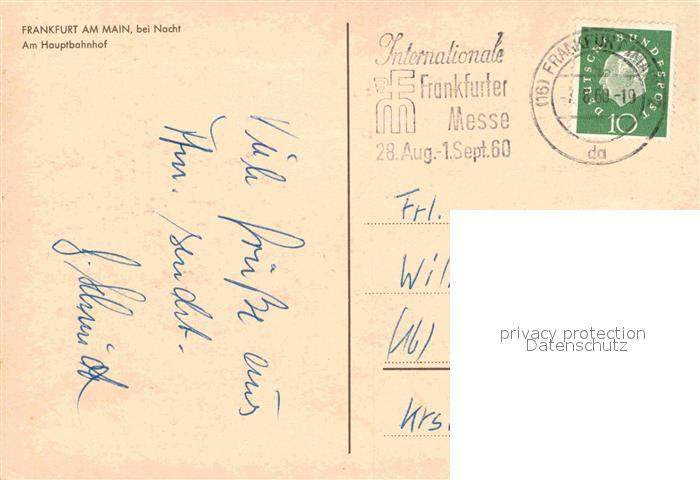 FRANKFURT AM MAIN, bei Nacht
Am Hauptbahnhof
Internationale
Frankfurter
Messe
28. Aug.-1. Sept. 60
(16) FRANKFURT
60-19
da
DEUTSCHE BUNDESPOST
10
Viele Grüße aus
Ffm. sendet
G. Schmidt
Frl.
Wil
(16)
Krs.
privacy protection
Datenschutz